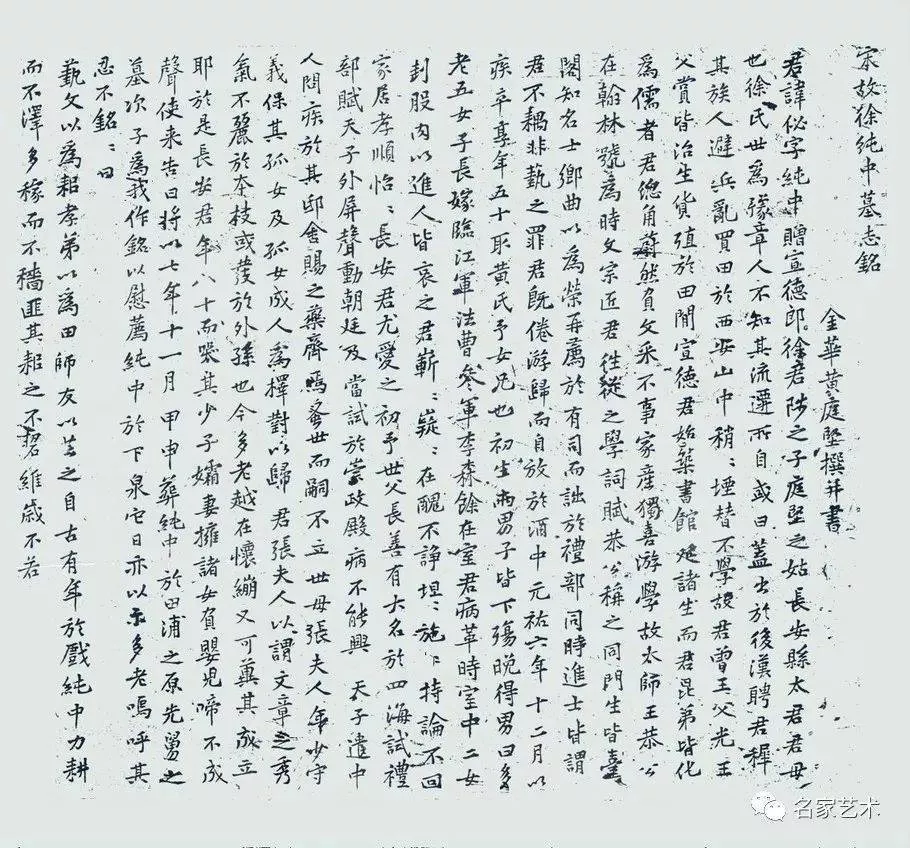 宋故徐純中墓志銘
金華黃庭堅撰并書
君諱佖字純中贈宣德郎徐君陟之子庭堅之姑長安縣太君君母
也徐氏世為豫章人不知其流遷所自或曰蓋出於後漢聘君穉
其族人避兵亂買田於西安山中稍〻堙替不學故君曾王父光王
父賞皆治生貨殖於田閒宣德君始築書館延諸生而君昆弟皆化
為儒者君總角蔚然負文采不事家產獨喜游學故太師王恭公
在翰林號為時文宗匠君往從之學詞賦恭公稱之同門生皆臺
閣知名士鄉曲以為榮再薦於有司而詘於禮部同時進士皆謂
君不耦非藝之罪君既倦游歸而自放於酒中元祐六年十二月以
疾卒享年五十取黃氏予女兄也初生兩男子皆下殤晚得男曰多
老五女子長嫁臨江軍法曹參軍李森餘在室君病革時室中二女
刲股肉以進人皆哀之君嶄〻嶷〻在醜不諍坦〻施〻持論不回
家居孝順怡〻長安君尤愛之初予世父長善有大名於四海試禮
部賦天子外屏聲動朝廷及當試於崇政殿病不能興 天子遣中
人問疾於其邸舍賜之藥齊焉蚤世而嗣不立世母張夫人年少守
義保其孤女及孤女成人為擇對以歸 君張夫人以謂文章之秀
氣不麗於本枝或發於外孫也今多老越在懷繃又可冀其成立
耶於是長安君年八十而哭其少子孀妻擁諸女負嬰兒啼不成
聲使來告曰將以七年十一月甲申葬純中於田浦之原先舅之
墓次子為我作銘以慰薦純中於下泉它日亦以示多老嗚呼其
忍不銘〻曰
藝文以為耜孝弟以為田師友以芸之自古有年於戲純中力耕
而不澤多稼而不穡匪其耜之不䂮維歲不若
名家艺术